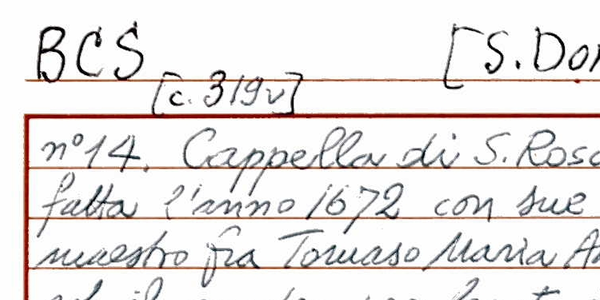 BCS [S. Do
[c. 319v]
n° 14. Cappella di S. Rosa
fatta l'anno 1672 con sue
maestro fra Tomaso Maria